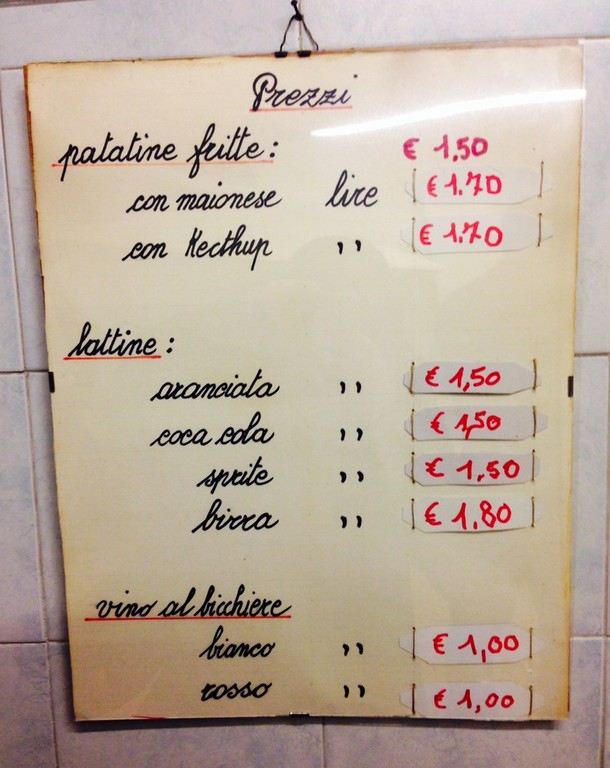 Prezzi
patatine fritte: € 1,50
con maionese lire € 1.70
con Kecthup ,, € 1.70
lattine:
aranciata ,, € 1,50
coca cola ,, € 1,50
sprite ,, € 1,50
birra ,, € 1,80
vino al bicchiere
bianco ,, € 1,00
rosso ,, € 1,00